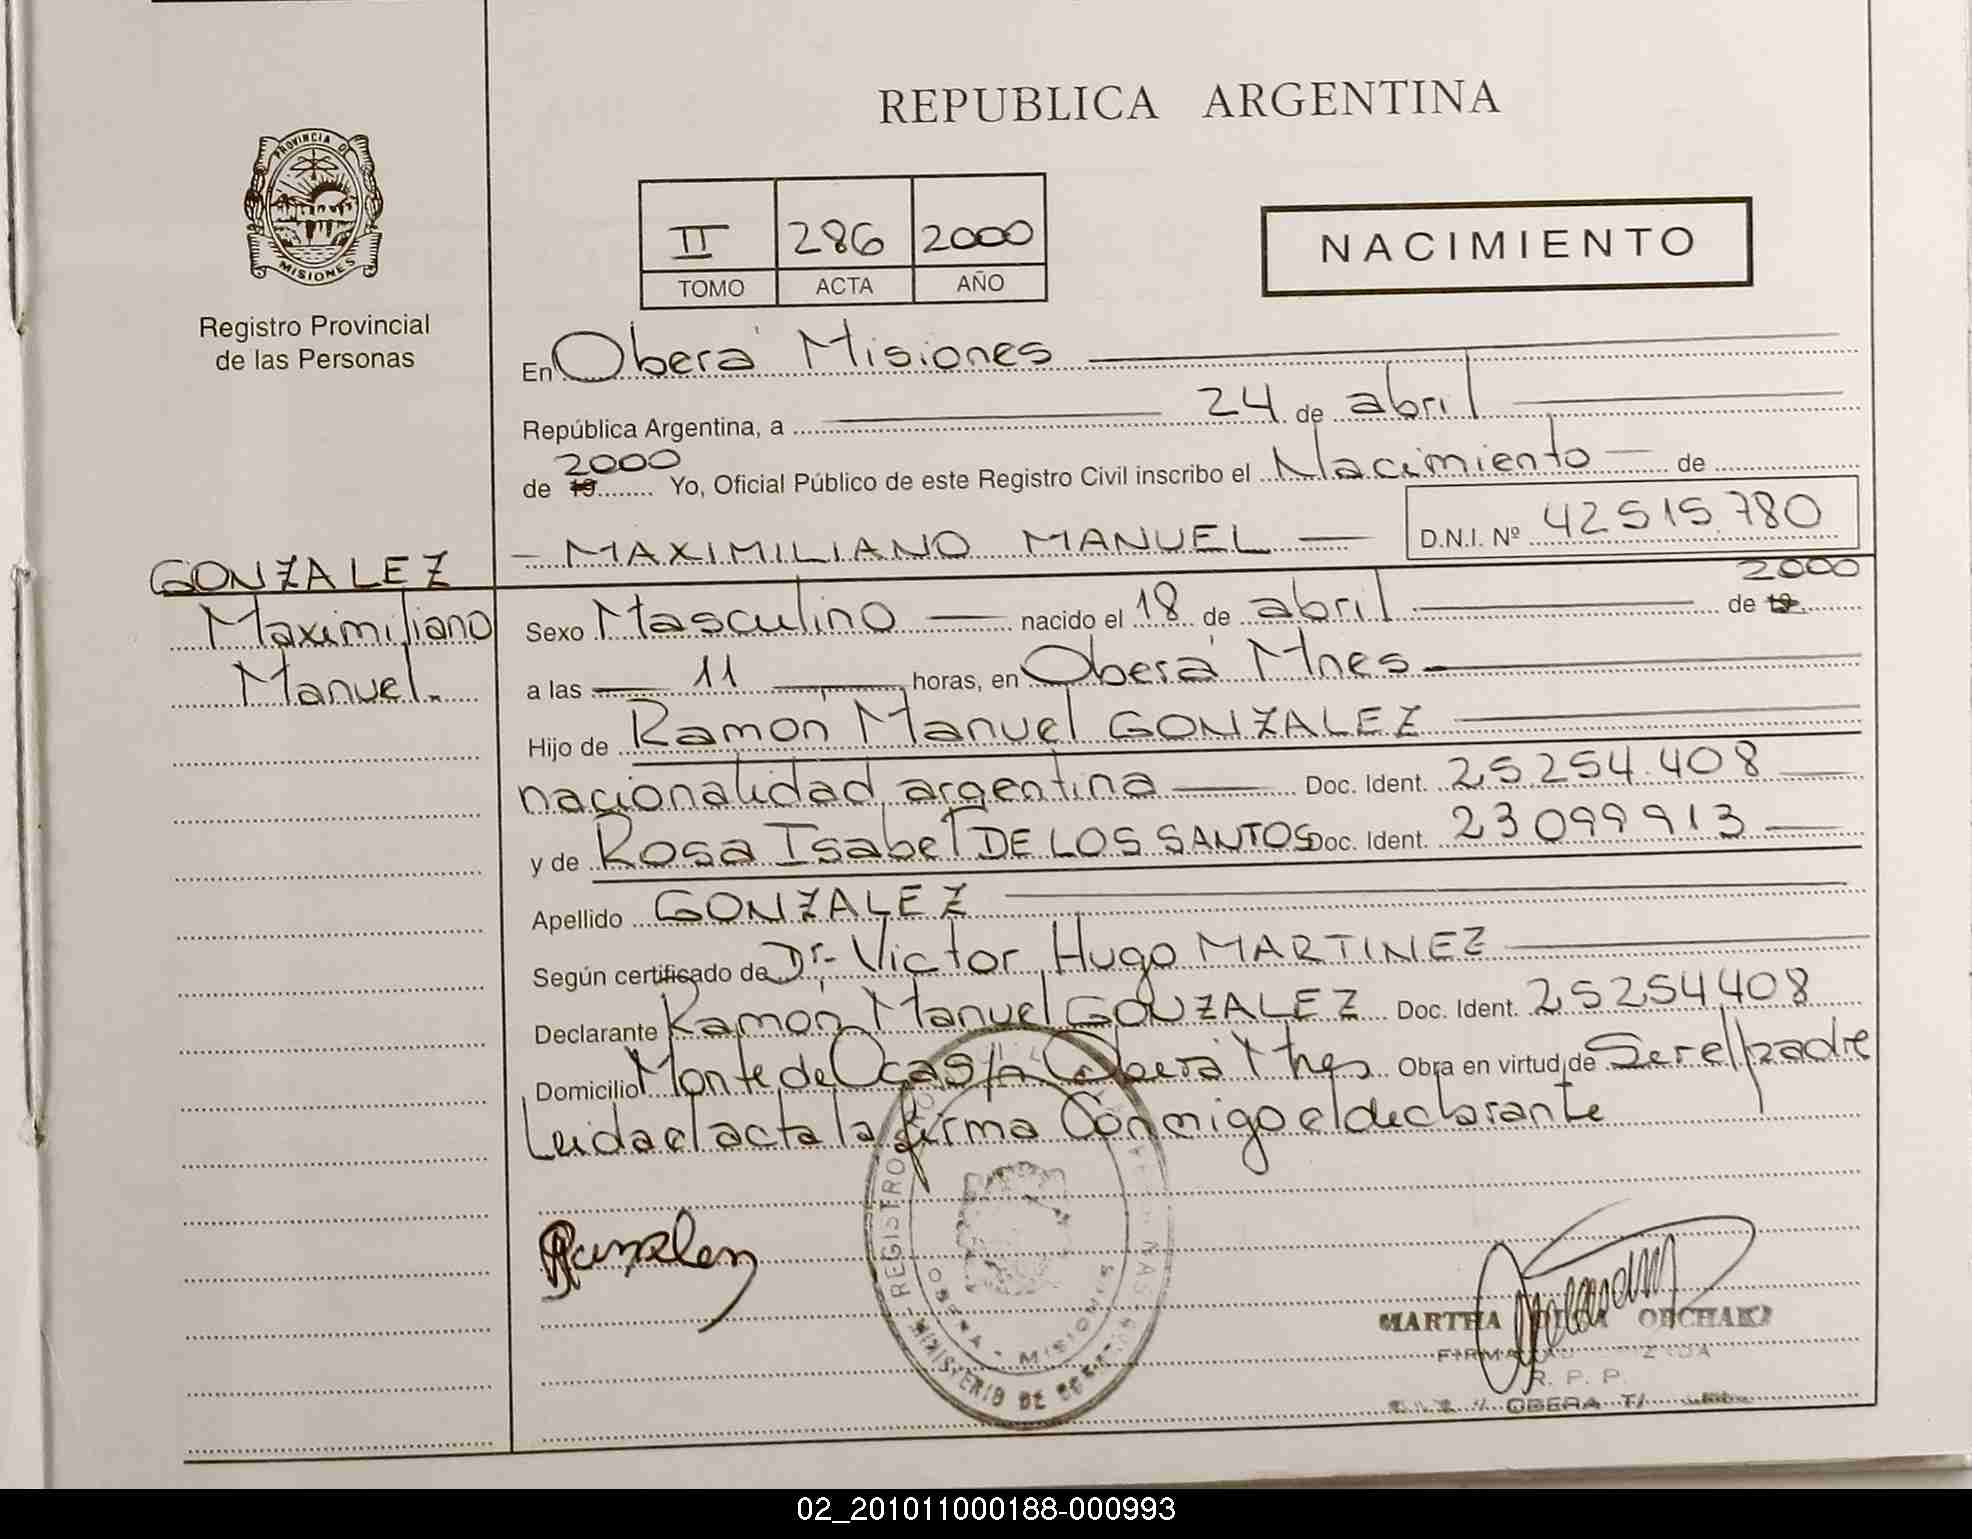 REPUBLICA ARGENTINA
PROVINCIA DE
MISIONES
Registro Provincial
de las Personas
II 286 2000
TOMO ACTA AÑO
NACIMIENTO
En Oberá Misiones
República Argentina, a 24 de abril
2000
de 19 Yo, Oficial Público de este Registro Civil inscribo el Nacimiento de
MAXIMILIANO MANUEL D.N.I. Nº 42515.780
GONZALEZ
Maximiliano
Manuel.
2000
Sexo Masculino nacido el 18 de abril de 19
a las 11 horas, en Oberá Mnes
Hijo de Ramón Manuel GONZALEZ
nacionalidad argentina Doc. Ident. 25.254.408
y de Rosa Isabel DE LOS SANTOS Doc. Ident. 23099913
Apellido GONZALEZ
Según certificado de Dr. Victor Hugo MARTINEZ
Declarante Ramón Manuel GONZALEZ Doc. Ident. 25254408
Domicilio Monte de Oca s/n Oberá Mnes Obra en virtud de Ser el padre
Leida el acta la firma Conmigo el declarante
REGISTRO
MINISTERIO DE
OBERA - MISIONES
MARTHA
R. P. P.
OBERA
02_201011000188-000993